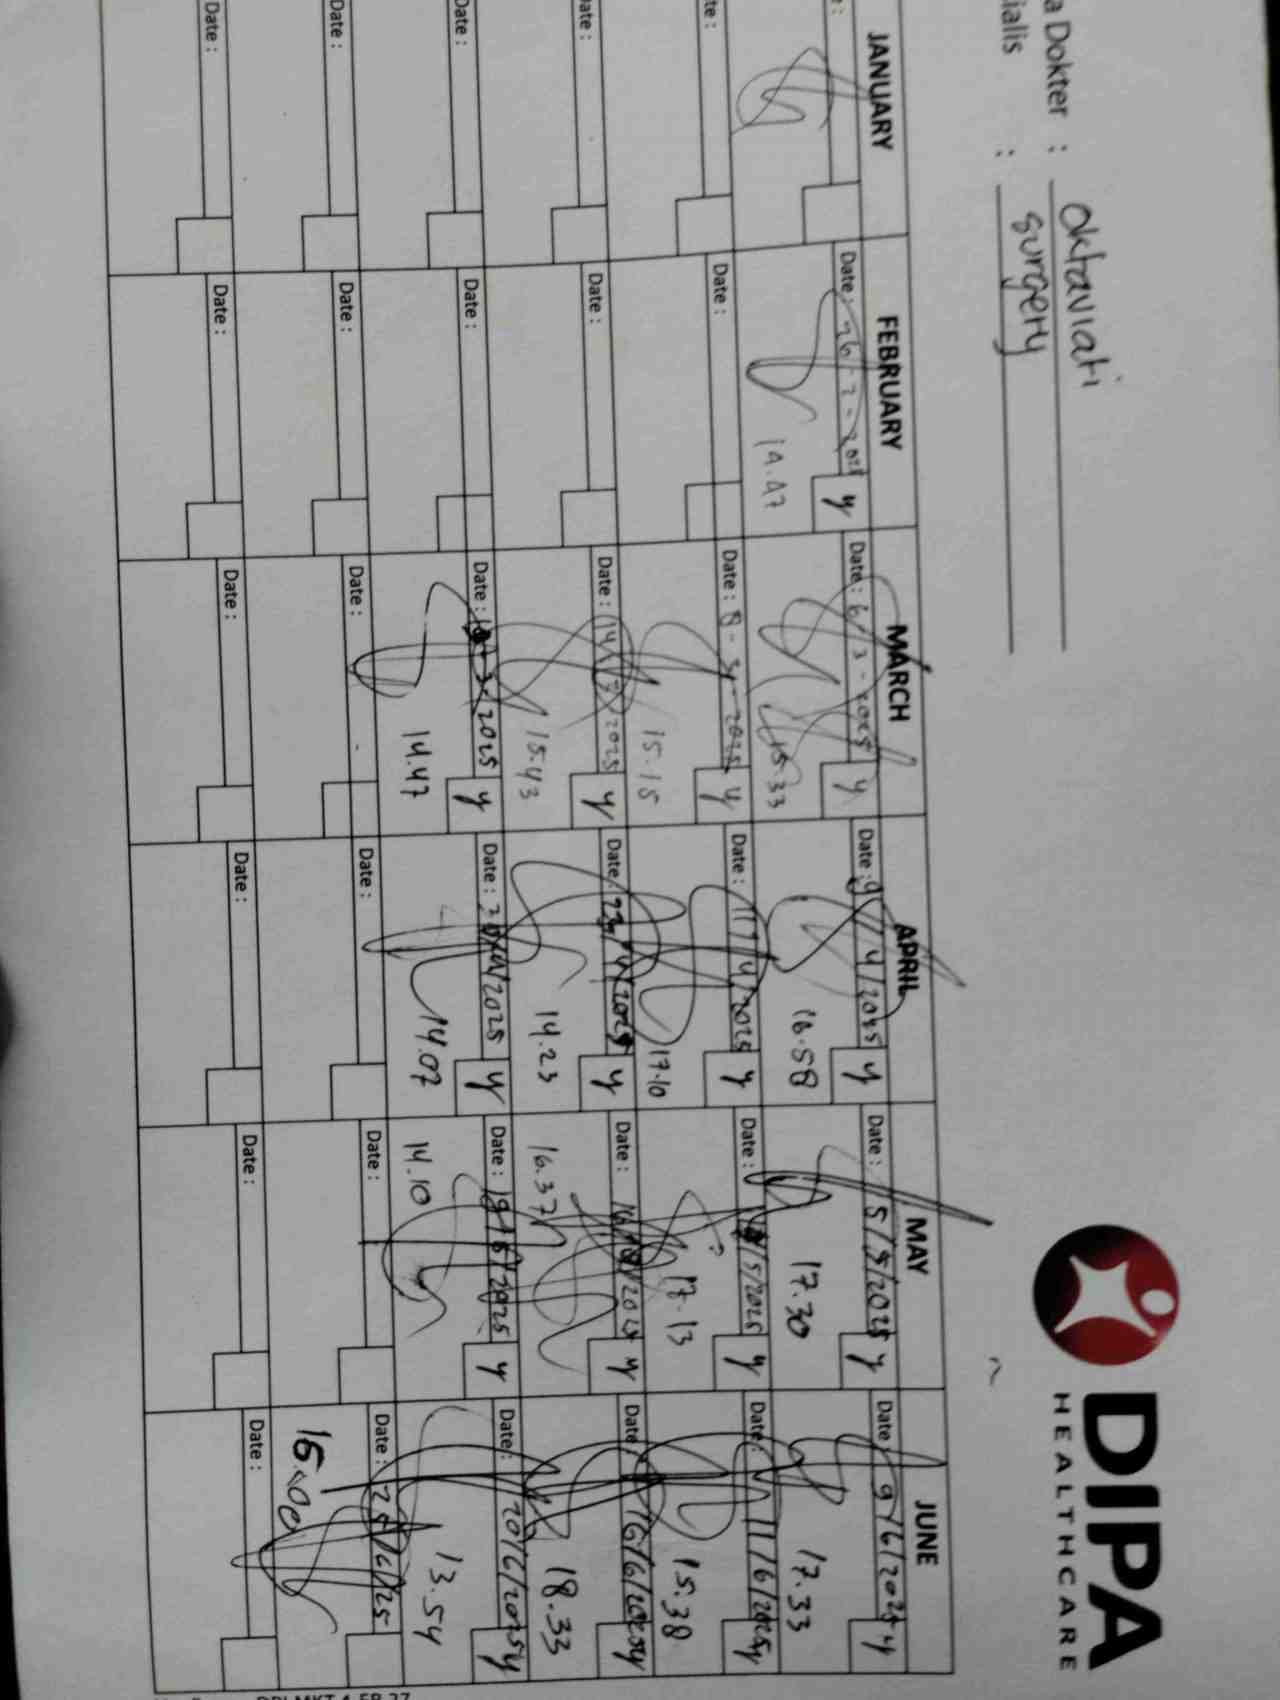 DIPA
HEALTHCARE
a Dokter : Oktaviati
ialis : surgery
JANUARY FEBRUARY MARCH APRIL MAY JUNE
: Date: 26-2-2025 y Date: 6-3-2025 y Date: 9/4/2025 y Date: 5/5/2025 y Date: 9/6/2025 y
14.47 15.33 16.58 17.30 17.33
te: Date: Date: 8-3-2025 y Date: 11/4/2025 y Date: /5/2025 y Date: 11/6/2025 y
15.15 17.10 17.13 15.38
ate: Date: Date: 14/3/2025 y Date: 23/4/2025 y Date: 16/5/2025 y Date: 16/6/2025 y
15.43 14.23 16.37 18.33
Date: Date: Date: 3-2025 y Date: 30/4/2025 y Date: 19/5/2025 y Date: 20/6/2025 y
14.47 14.07 14.10 13.54
Date: Date: Date: Date: Date: Date: 25/6/25
Date: Date: Date: Date: Date: Date: